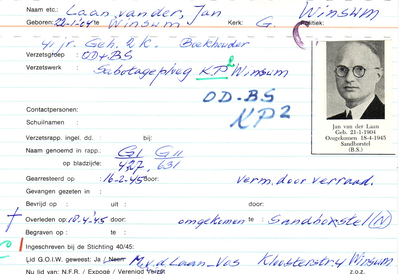 Naam etc.: Laan van der, Jan WINSUM
Geboren: 22-1-'04 te Winsum Kerk: G. Politiek:
41 jr. Geh. 2 K. Boekhouder
Verzetsgroep : OD + BS
Verzetswerk Sabotageploeg K.P. 2 Winsum
OD-BS
KP 2
Contactpersonen:
Schuilnaam :
Verzetsrapp. ingel. dd. : bij:
Naam genoemd in rapp.: GI GII
op bladzijde: 427. 631
Jan van der Laan
Geb. 21-1-1904
Omgekomen 18-4-1945
Sandborstel
(B.S.)
Gearresteerd op :16-2-45 door: verm. door verraad.
Gevangen gezeten in :
Bevrijd op : uit : door:
Overleden op: 10-4-'45 door: omgekomen te Sandborstel (N)
Begraven op : te:
Ingeschreven bij de Stichting 40/45:
Lid G.O.I.W. geweest: Ja / Neen M. v.d. Laan-Vos Kloosterstr. 4 Winsum
Nu lid van: N.F.R. / Expogé / Verenigd Verzet z.o.z.